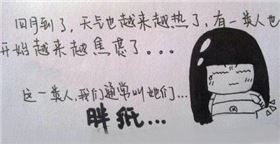 四月到了，天气也越来越热了，有一类人也
开始越来越焦虑了...
这一类人，我们通常叫她们...
胖纸...